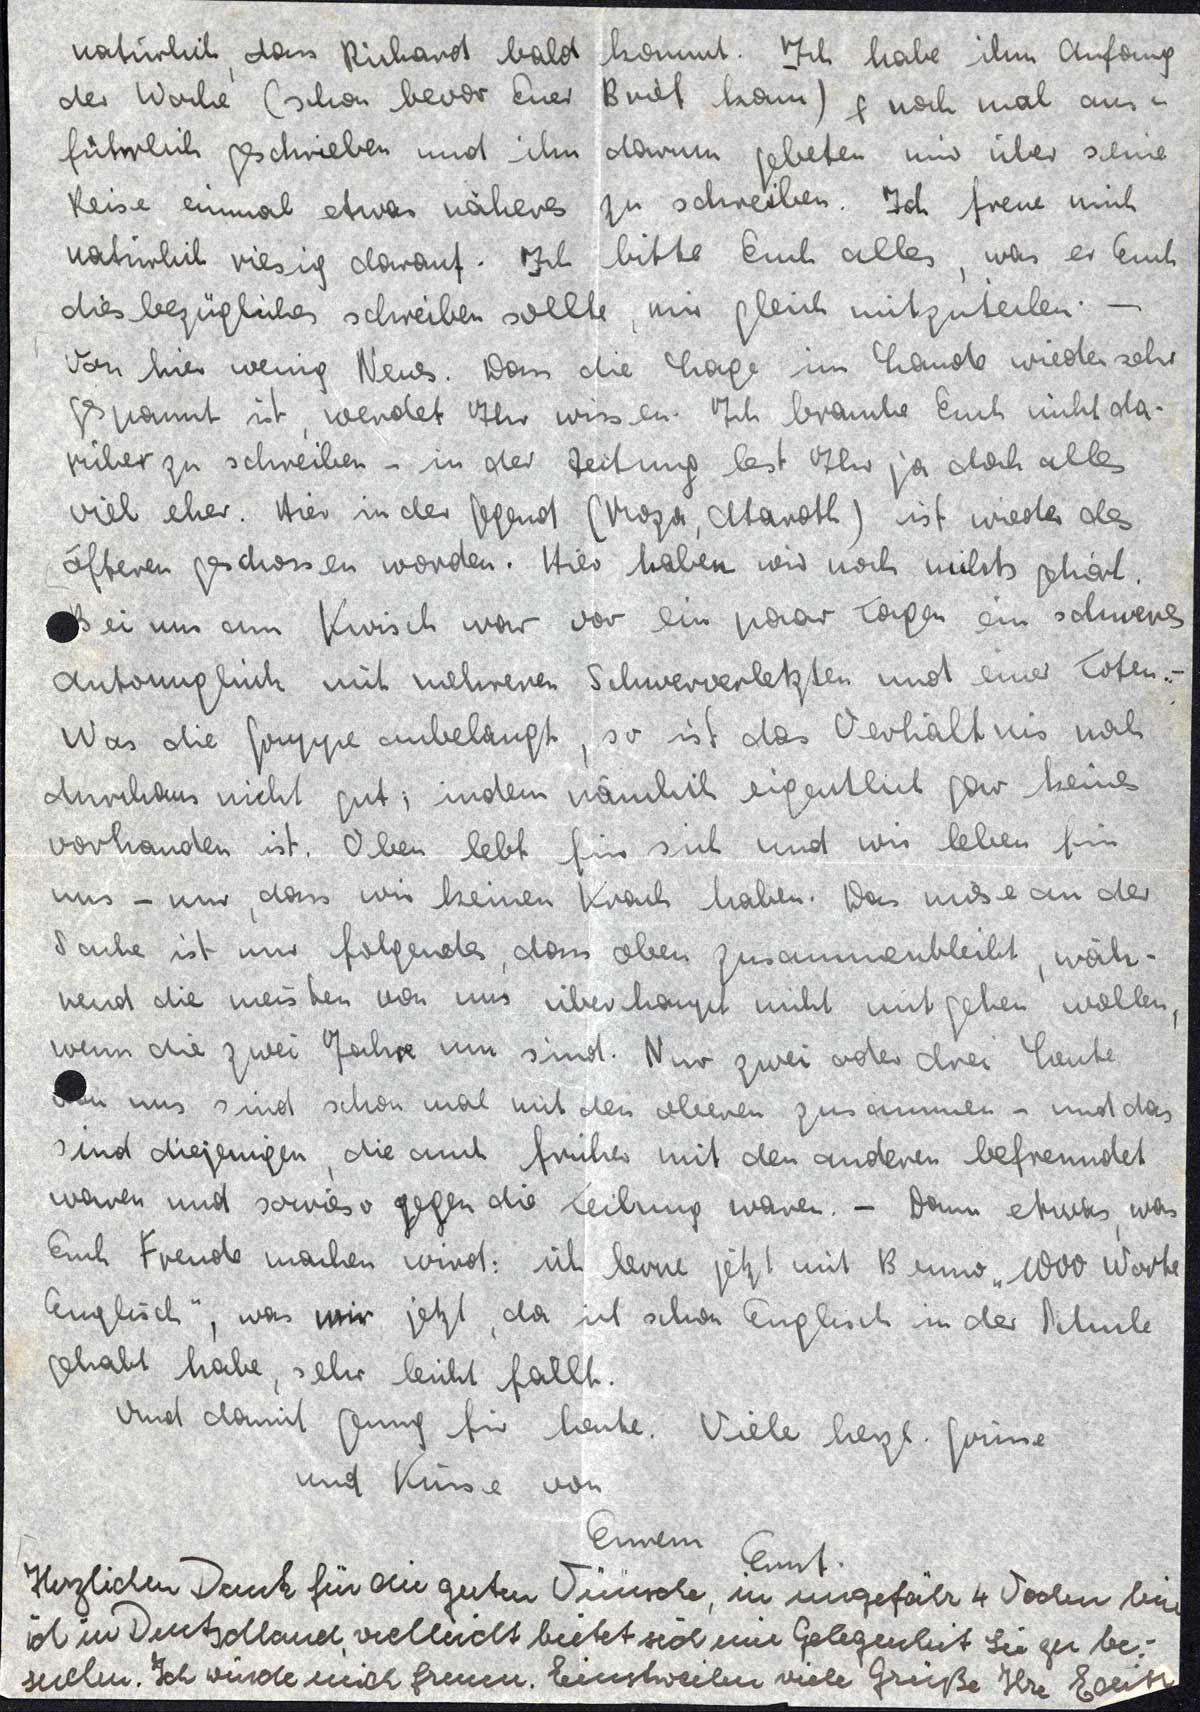 natürlich, dass Richard bald kommt. Ich habe ihm Anfang
der Woche (schon bevor Euer Brief kam) noch mal aus-
führlich geschrieben und ihn darum gebeten mir über seine
Reise einmal etwas näheres zu schreiben. Ich freue mich
natürlich riesig darauf. Ich bitte Euch alles, was er Euch
diesbezügliches schreiben sollte, mir gleich mitzuteilen. —
Von hier wenig Neues. Dass die Lage im Lande wieder sehr
gespannt ist, werdet Ihr wissen. Ich brauche Euch nicht da-
rüber zu schreiben - in der Zeitung lest Ihr ja doch alles
viel eher. Hier in der Gegend (Moza, Ataroth) ist wieder des
öfteren geschossen worden. Hier haben wir noch nichts gehört.
Bei uns am Kwisch war vor ein paar Tagen ein schweres
Autounglück mit mehreren Schwerverletzten und einer Toten. -
Was die Gruppe anbelangt, so ist das Verhältnis noch
durchaus nicht gut; indem nämlich eigentlich gar keines
vorhanden ist. Oben lebt für sich und wir leben für
uns - nur, dass wir keinen Krach haben. Das miese an der
Sache ist nur folgendes, dass oben zusammenbleibt, wäh-
rend die meisten von uns überhaupt nicht mitgehen wollen,
wenn die zwei Jahre um sind. Nur zwei oder drei Leute
von uns sind schon mal mit den oberen zusammen - und das
sind diejenigen, die auch früher mit den anderen befreundet
waren und sowieso gegen die Teilung waren. - Dann etwas, was
Euch Freude machen wird: ich lerne jetzt mit Benno „1000 Worte
Englisch", was mir jetzt, da ich schon Englisch in der Schule
gehabt habe, sehr leicht fällt.
Und damit genug für heute. Viele herzl. Grüsse
und Küsse von
Eurem
Ernst.
Herzlichen Dank für die guten Wünsche, in ungefähr 4 Wochen bin
ich in Deutschland, vielleicht bietet sich eine Gelegenheit Sie zu be-
suchen. Ich würde mich freuen. Einstweilen viele Grüße Ihre Edith